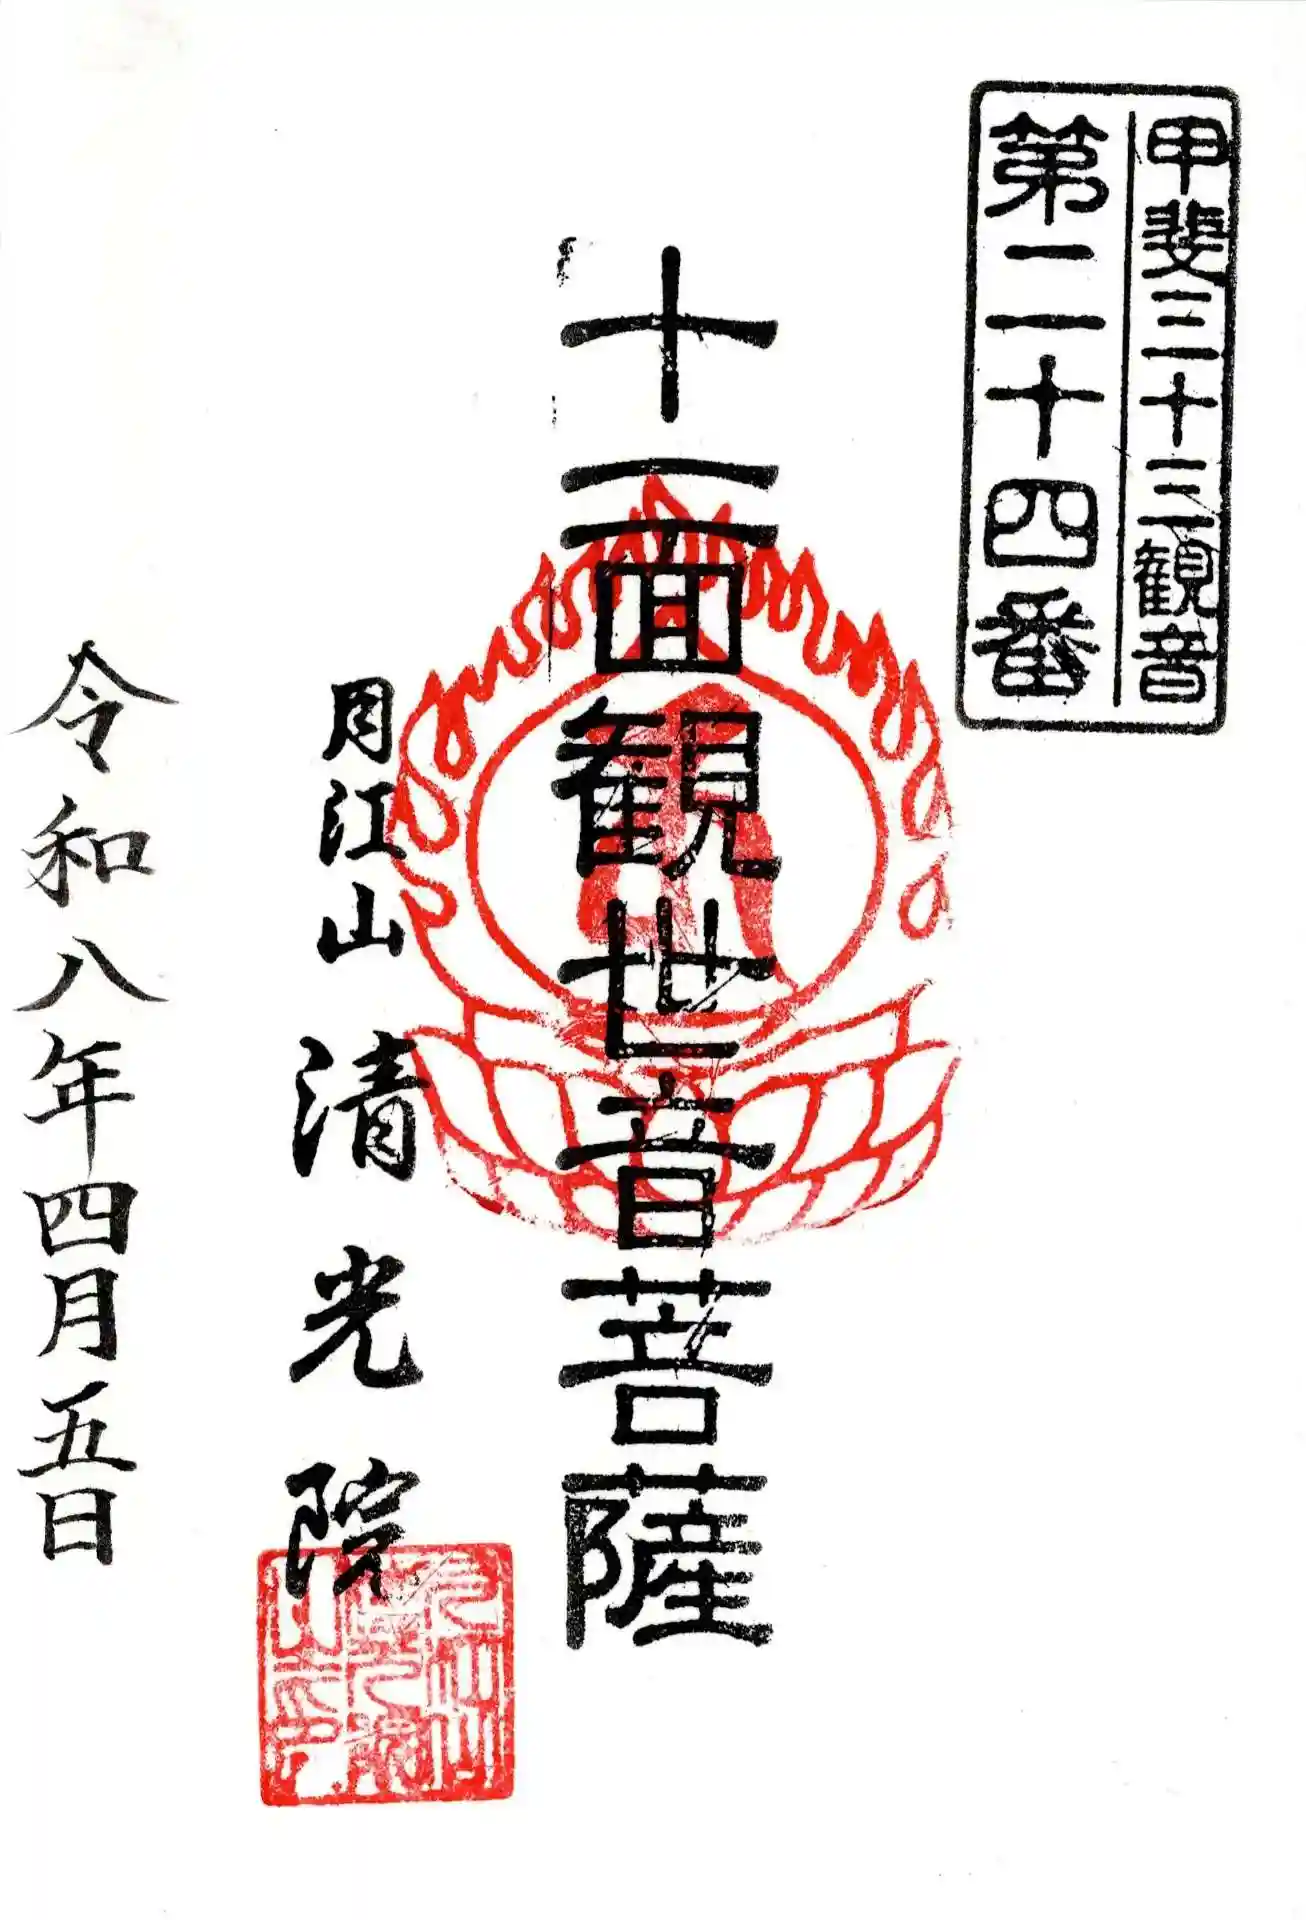 甲斐三十三観音
第二十四番
十一面観世音菩薩
月江山 清光院
令和八年四月五日